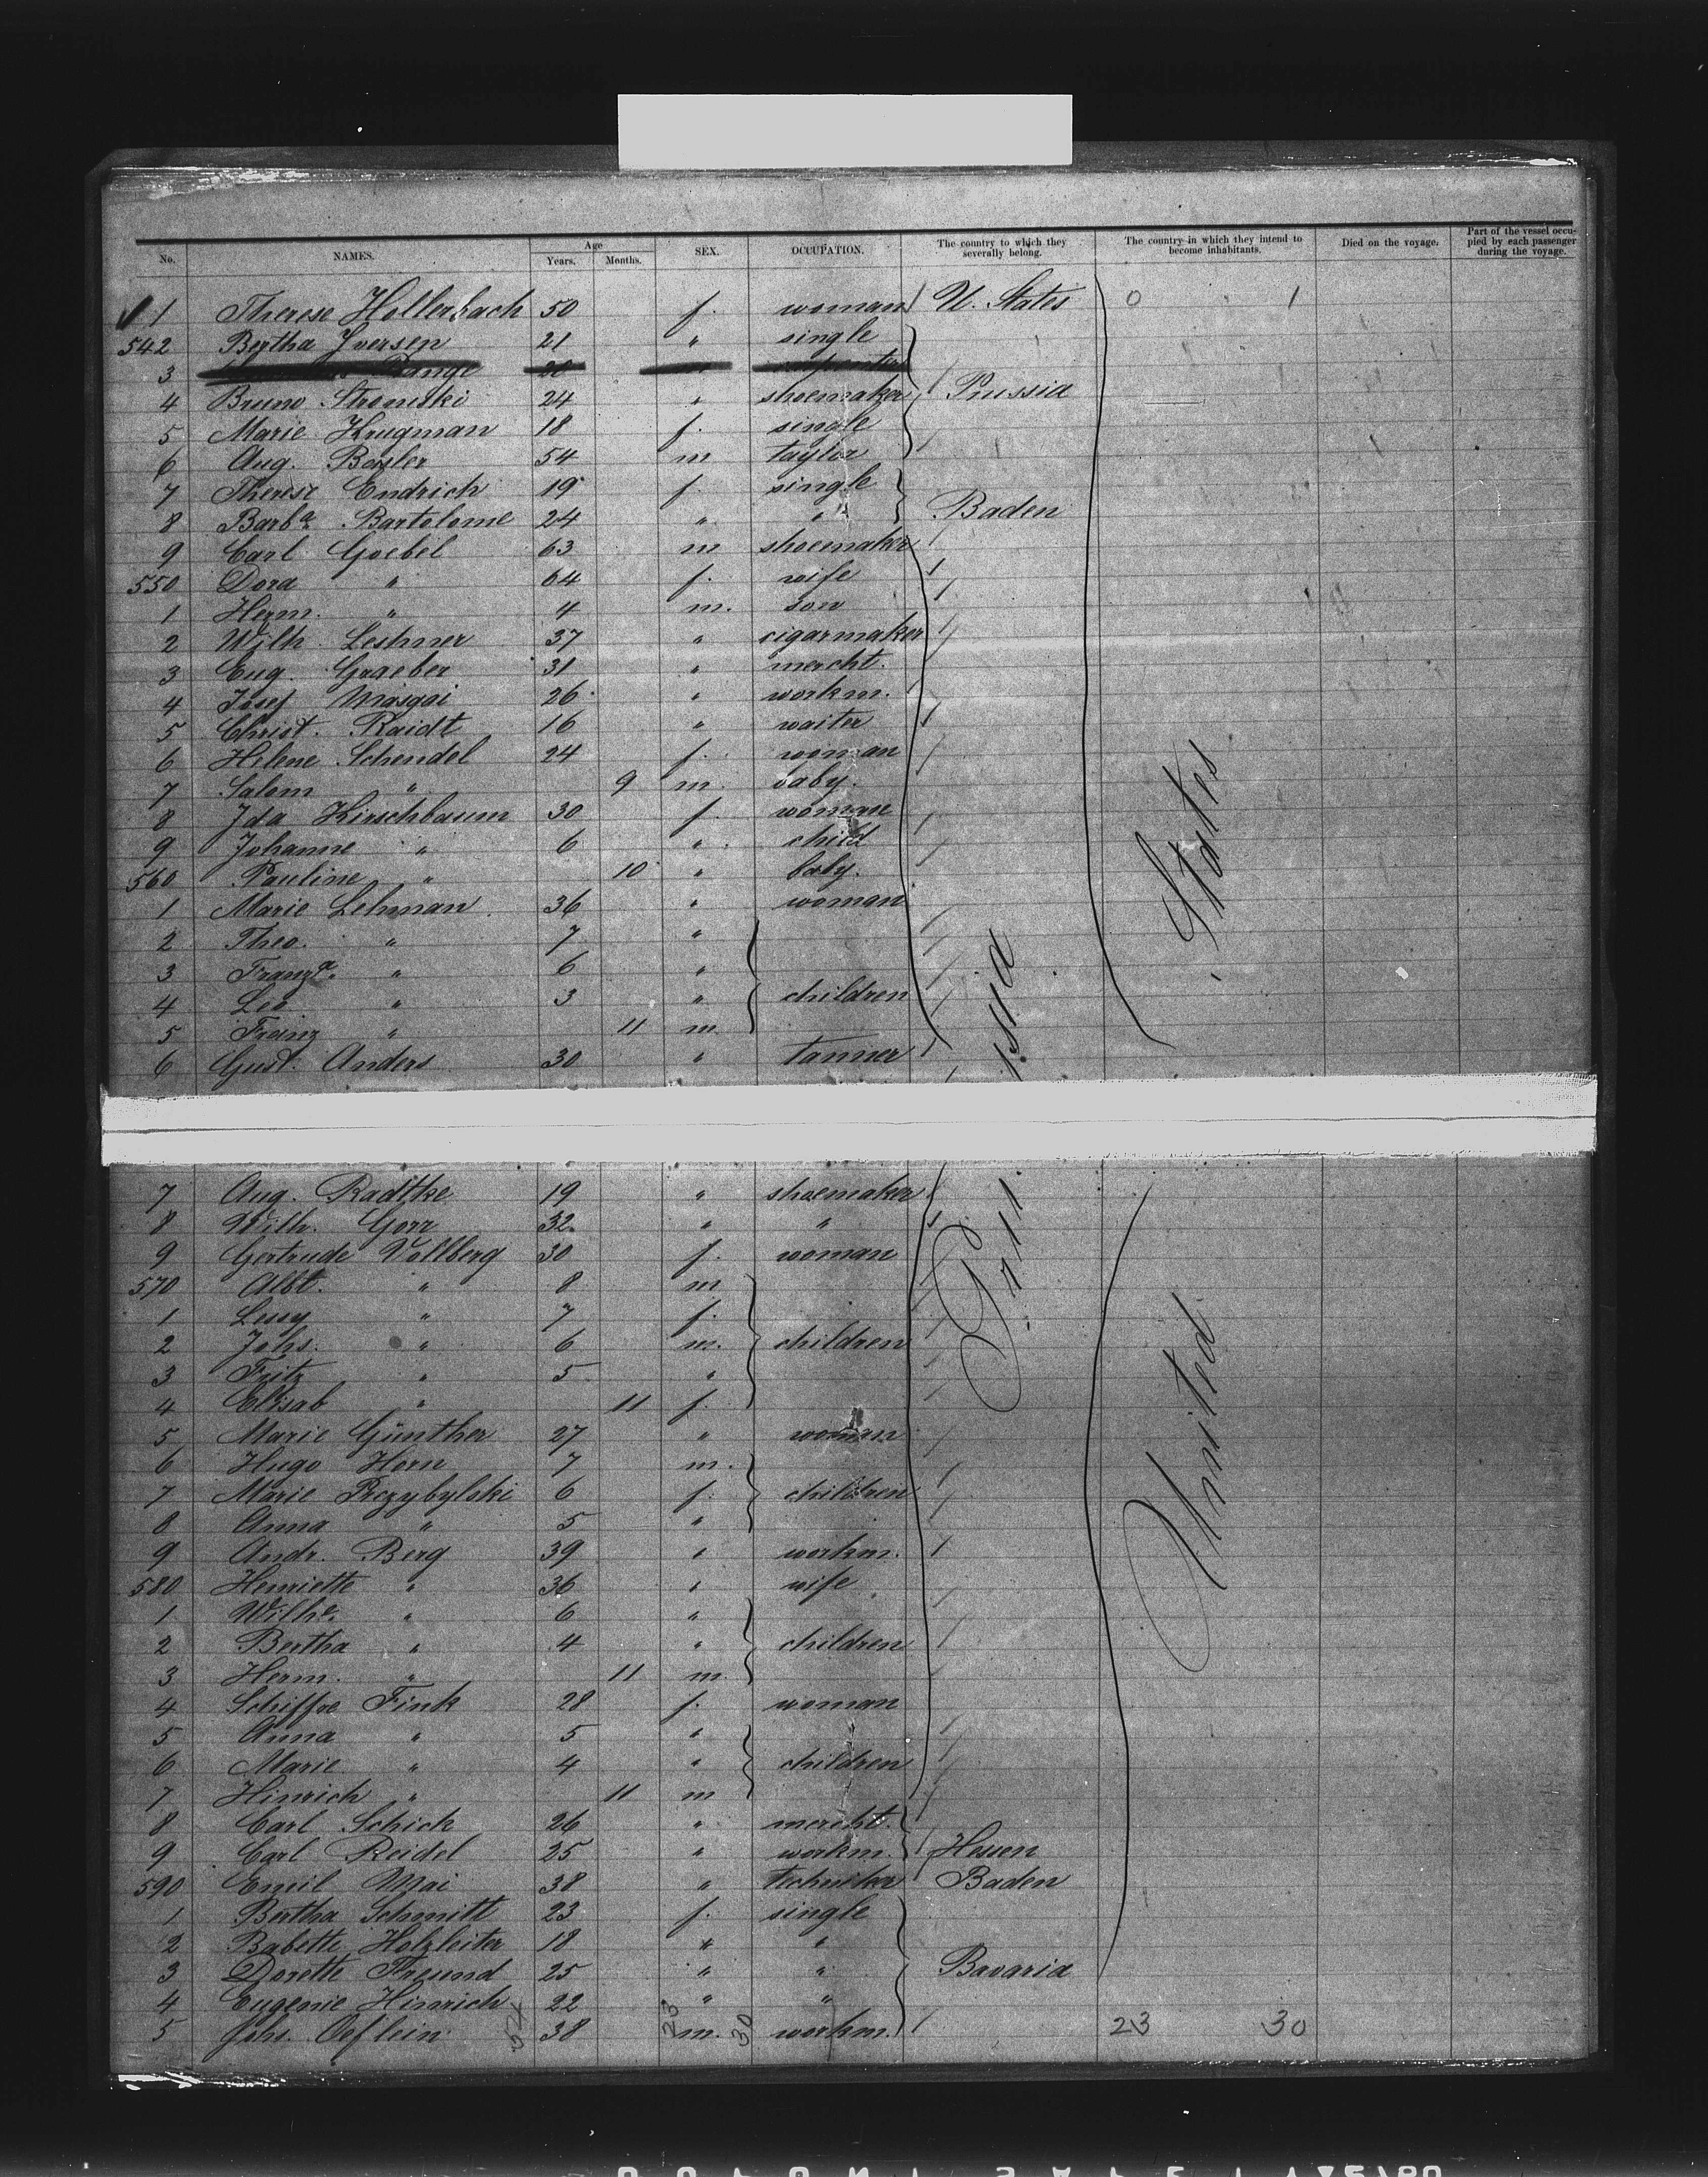 No. NAMES. Age Years. Months. SEX. OCCUPATION. The country to which they severally belong. The country in which they intend to become inhabitants. Died on the voyage. Part of the vessel occupied by each passenger during the voyage.
1 Therese Hollerbach 50 f. woman U. States 0 1
542 Bertha Iversen 21 " single
3
4 Bruno 24 " shoemaker Prussia
5 Marie Krugman 18 f. single
6 Aug. Bayler 54 m taylor
7 Therese Endrich 19 f. single
8 Barba. Bartolome 24 " " Baden
9 Carl Goebel 63 m shoemaker
550 Dora " 64 f. wife
1 Herm. " 4 m. son
2 Wilh. Leshner 37 " cigarmaker
3 Eug. Graeber 31 " mercht.
4 Josef Masgai 26 " workm.
5 Christ. Raidt 16 " waiter
6 Helene Schendel 24 f. woman
7 Salom " 9 m. baby.
8 Ida Hirschbaum 30 f. woman
9 Johanne " 6 " child
560 Pauline " 10 " baby.
1 Marie Lehman 36 " woman
2 Theo. " 7 "
3 Franza. " 6 "
4 Leo " 3 " children
5 Franz " 11 m.
6 Gust. Anders 30 " tanner
7 Aug. Radtke 19 " shoemaker
8 Wilh. Gorr 32 " "
9 Gertrude Vollberg 30 f. woman
570 Albt. " 8 m
1 " 7 f.
2 Johs. " 6 m. children
3 Fritz " 5 "
4 Elisab " 11 f.
5 Marie Günther 27 " woman
6 Hugo Horn 7 m.
7 Marie Przybylski 6 f. children
8 Anna " 5 "
9 Andr. Berg 39 " workm.
580 Henriette " 36 " wife
1 Wilhe. " 6 "
2 Bertha " 4 " children
3 Herm. " 11 m.
4 Fink 28 f. woman
5 Anna " 5 "
6 Marie " 4 " children
7 Hinrich " 11 m
8 Carl Schick 26 " mercht.
9 Carl Reidel 25 " workm. Hessen
590 Emil Mai 38 " techniker Baden
1 Bertha Schmitt 23 f. single
2 Babette Holzleiter 18 " "
3 Dorette Freund 25 " " Bavaria
4 Eugenie Hinrich 22 " "
5 Johs. Oeflein 38 m. workm. 23 30
Prussia
United States
54
23
30